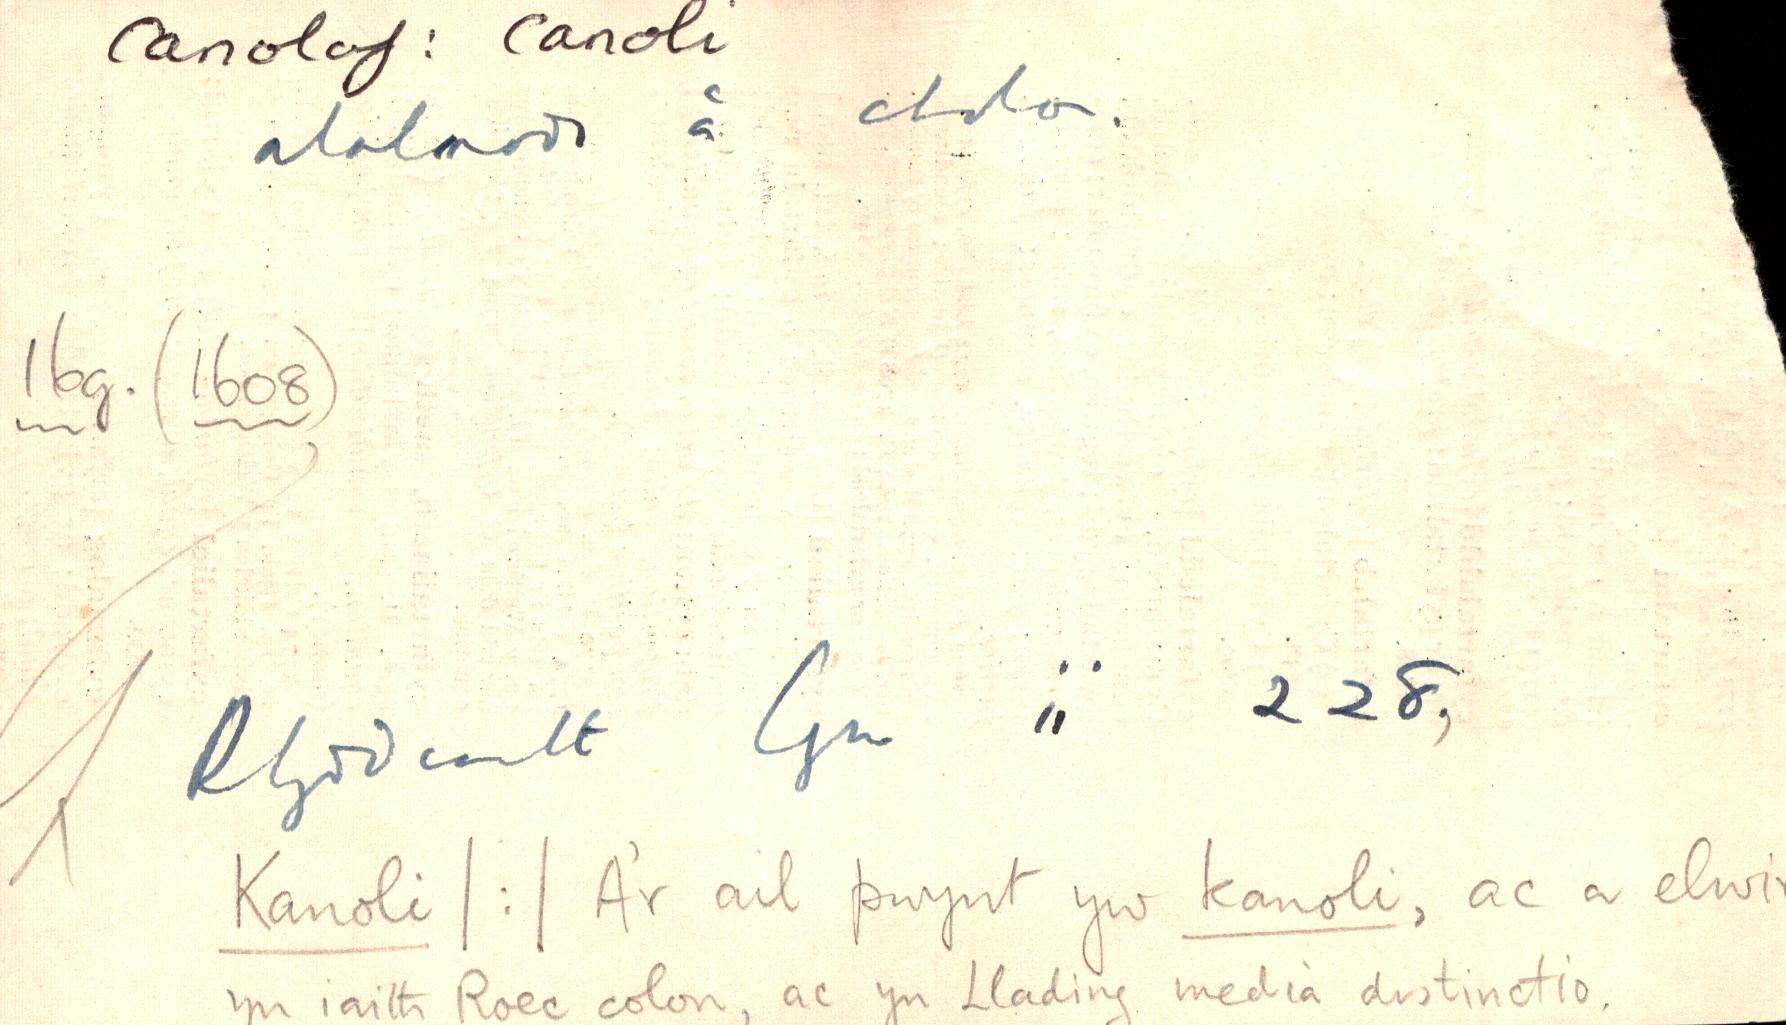 canolaf: canoli
atalnodi â cholon.
16g. (1608)
Rhyddiaith Gyn ii 228,
Kanoli /:/ A'r ail pwynt yw kanoli, ac a elwir
yn iaith Roec colon, ac yn Llading media distinctio.